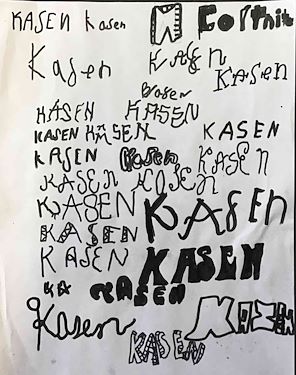 KASEN Kasen
Kasen KASEN
KASEN
Kasen
KASEN KASEN
KASEN KASEN KASEN
KASEN Kasen KASEN
KASEN KASEN
KASEN KASEN
KASEN
KASEN KASEN
KA KASEN
Kasen KASEN
KASEN